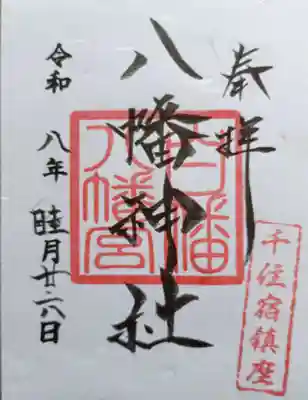 奉拝
八幡神社
白幡
八幡宮
千住宿鎮座
令和八年 睦月廿六日